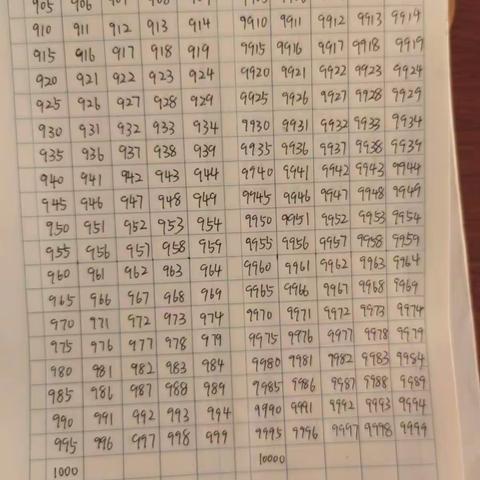 905 906 907 908 909
910 911 912 913 914 9910 9911 9912 9913 9914
915 916 917 918 919 9915 9916 9917 9918 9919
920 921 922 923 924 9920 9921 9922 9923 9924
925 926 927 928 929 9925 9926 9927 9928 9929
930 931 932 933 934 9930 9931 9932 9933 9934
935 936 937 938 939 9935 9936 9937 9938 9939
940 941 942 943 944 9940 9941 9942 9943 9944
945 946 947 948 949 9945 9946 9947 9948 9949
950 951 952 953 954 9950 9951 9952 9953 9954
955 956 957 958 959 9955 9956 9957 9958 9959
960 961 962 963 964 9960 9961 9962 9963 9964
965 966 967 968 969 9965 9966 9967 9968 9969
970 971 972 973 974 9970 9971 9972 9973 9974
975 976 977 978 979 9975 9976 9977 9978 9979
980 981 982 983 984 9980 9981 9982 9983 9984
985 986 987 988 989 9985 9986 9987 9988 9989
990 991 992 993 994 9990 9991 9992 9993 9994
995 996 997 998 999 9995 9996 9997 9998 9999
1000 10000